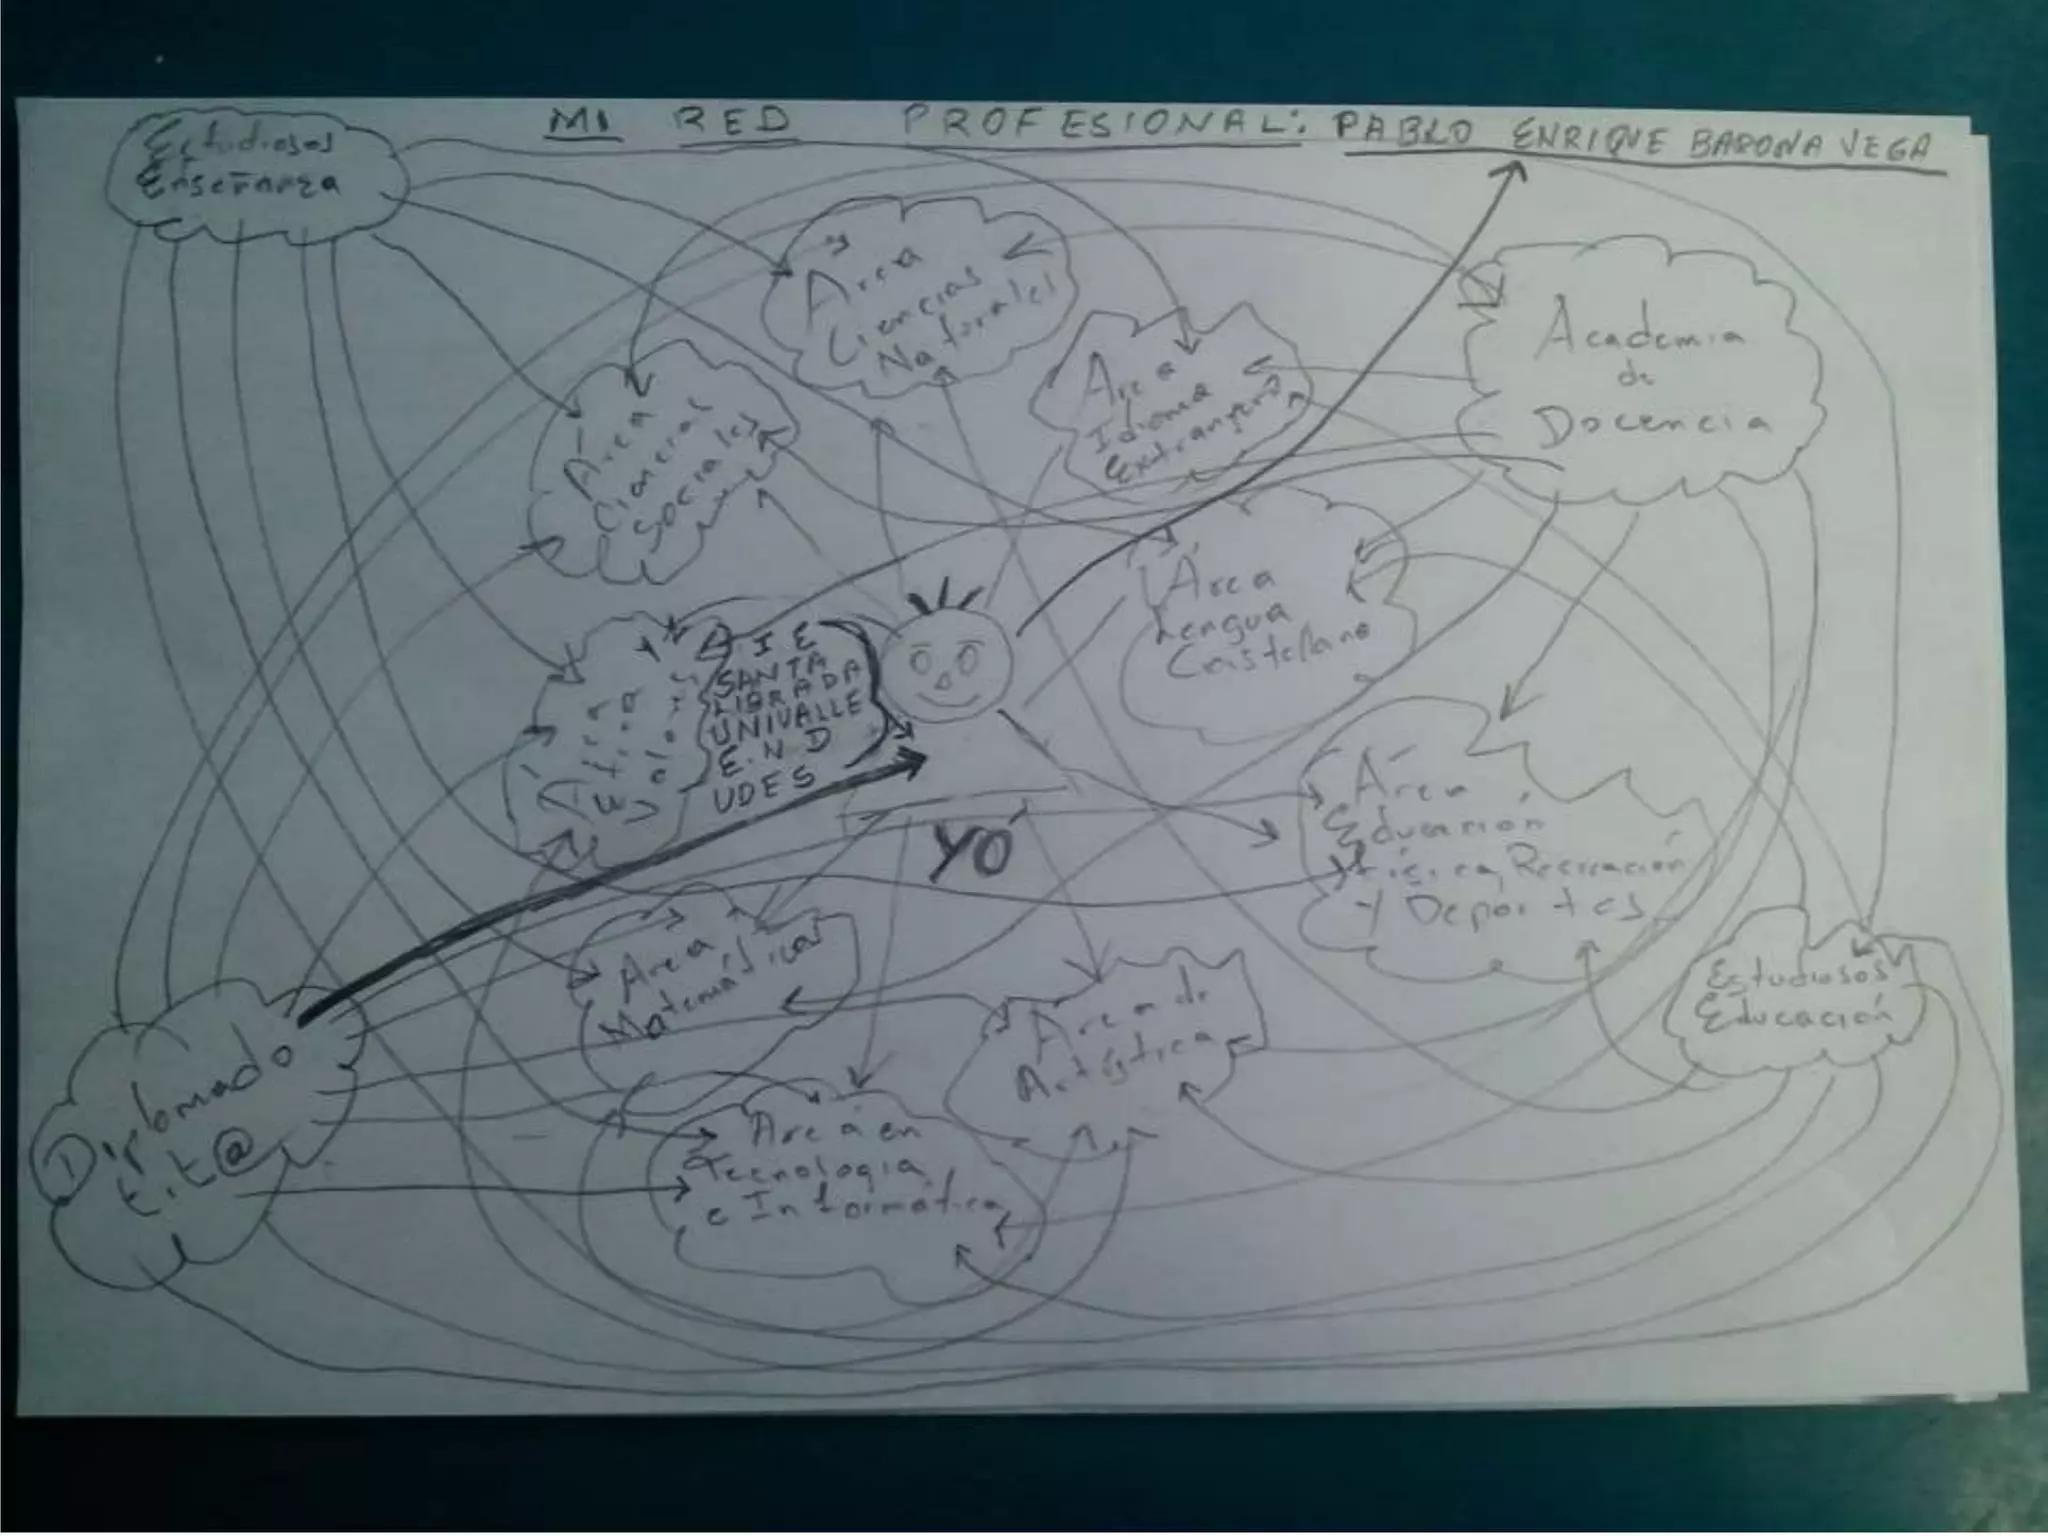 MI RED PROFESIONAL: PABLO ENRIQUE BARONA VEGA
Estudiosos
Enseñanza
Área
Ciencias
Naturales
Academia
de
Docencia
Área
Idioma
Extranjero
Área
Ciencias
Sociales
Área
Lengua
Castellano
I E
SANTA
LIBRADA
UNIVALLE
E.N D
UDES
Área
Ética
Valores
YO
Área
Educación
Física, Recreación
Y Deportes
Área
Matemáticas
Estudiosos
Educación
Área de
Artística
Diplomado
t.it@
Área en
Tecnología
e Informática